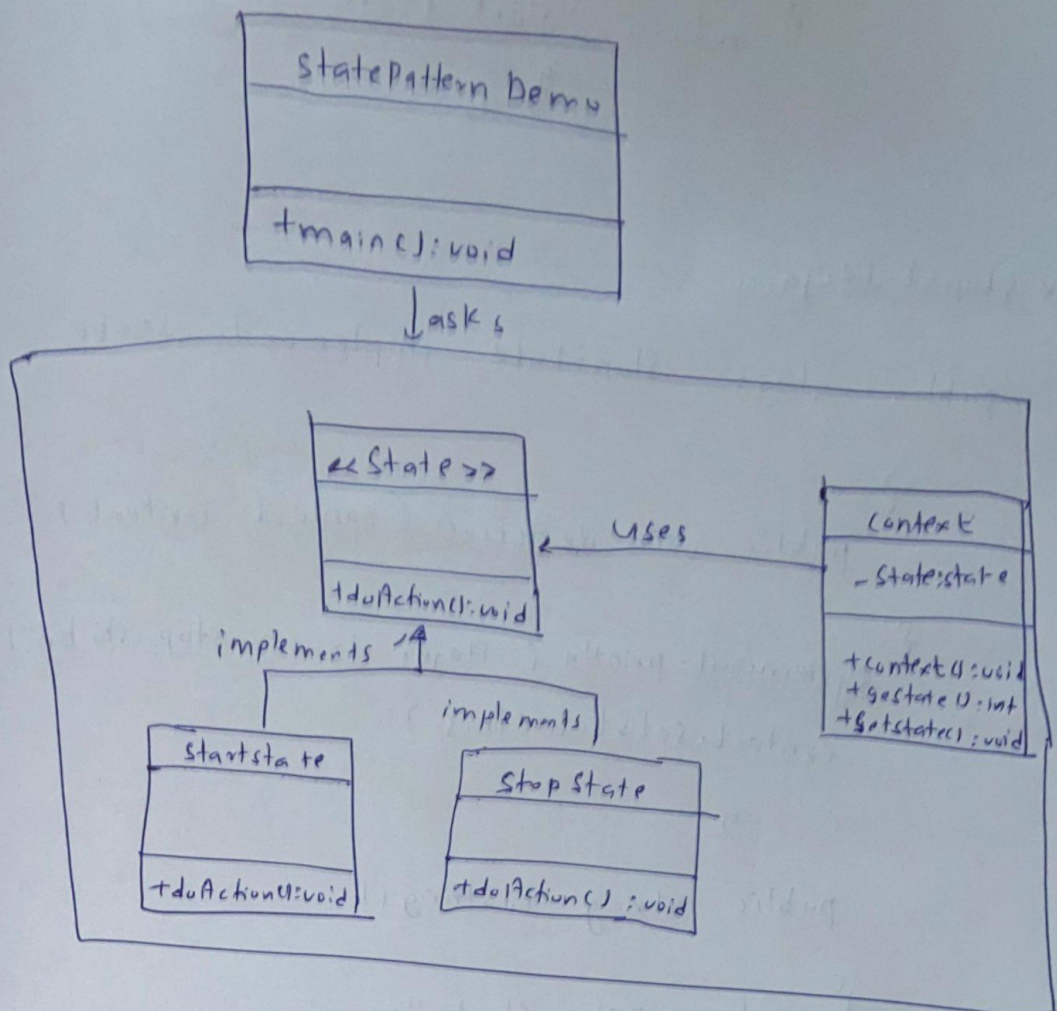 statePattern Demo
+main():void
asks
<<State>>
+doAction():void
uses
Context
- State:state
+context():void
+gestate():int
+setstate():void
implements
implements
startstate
+doAction():void
Stop State
+doAction():void